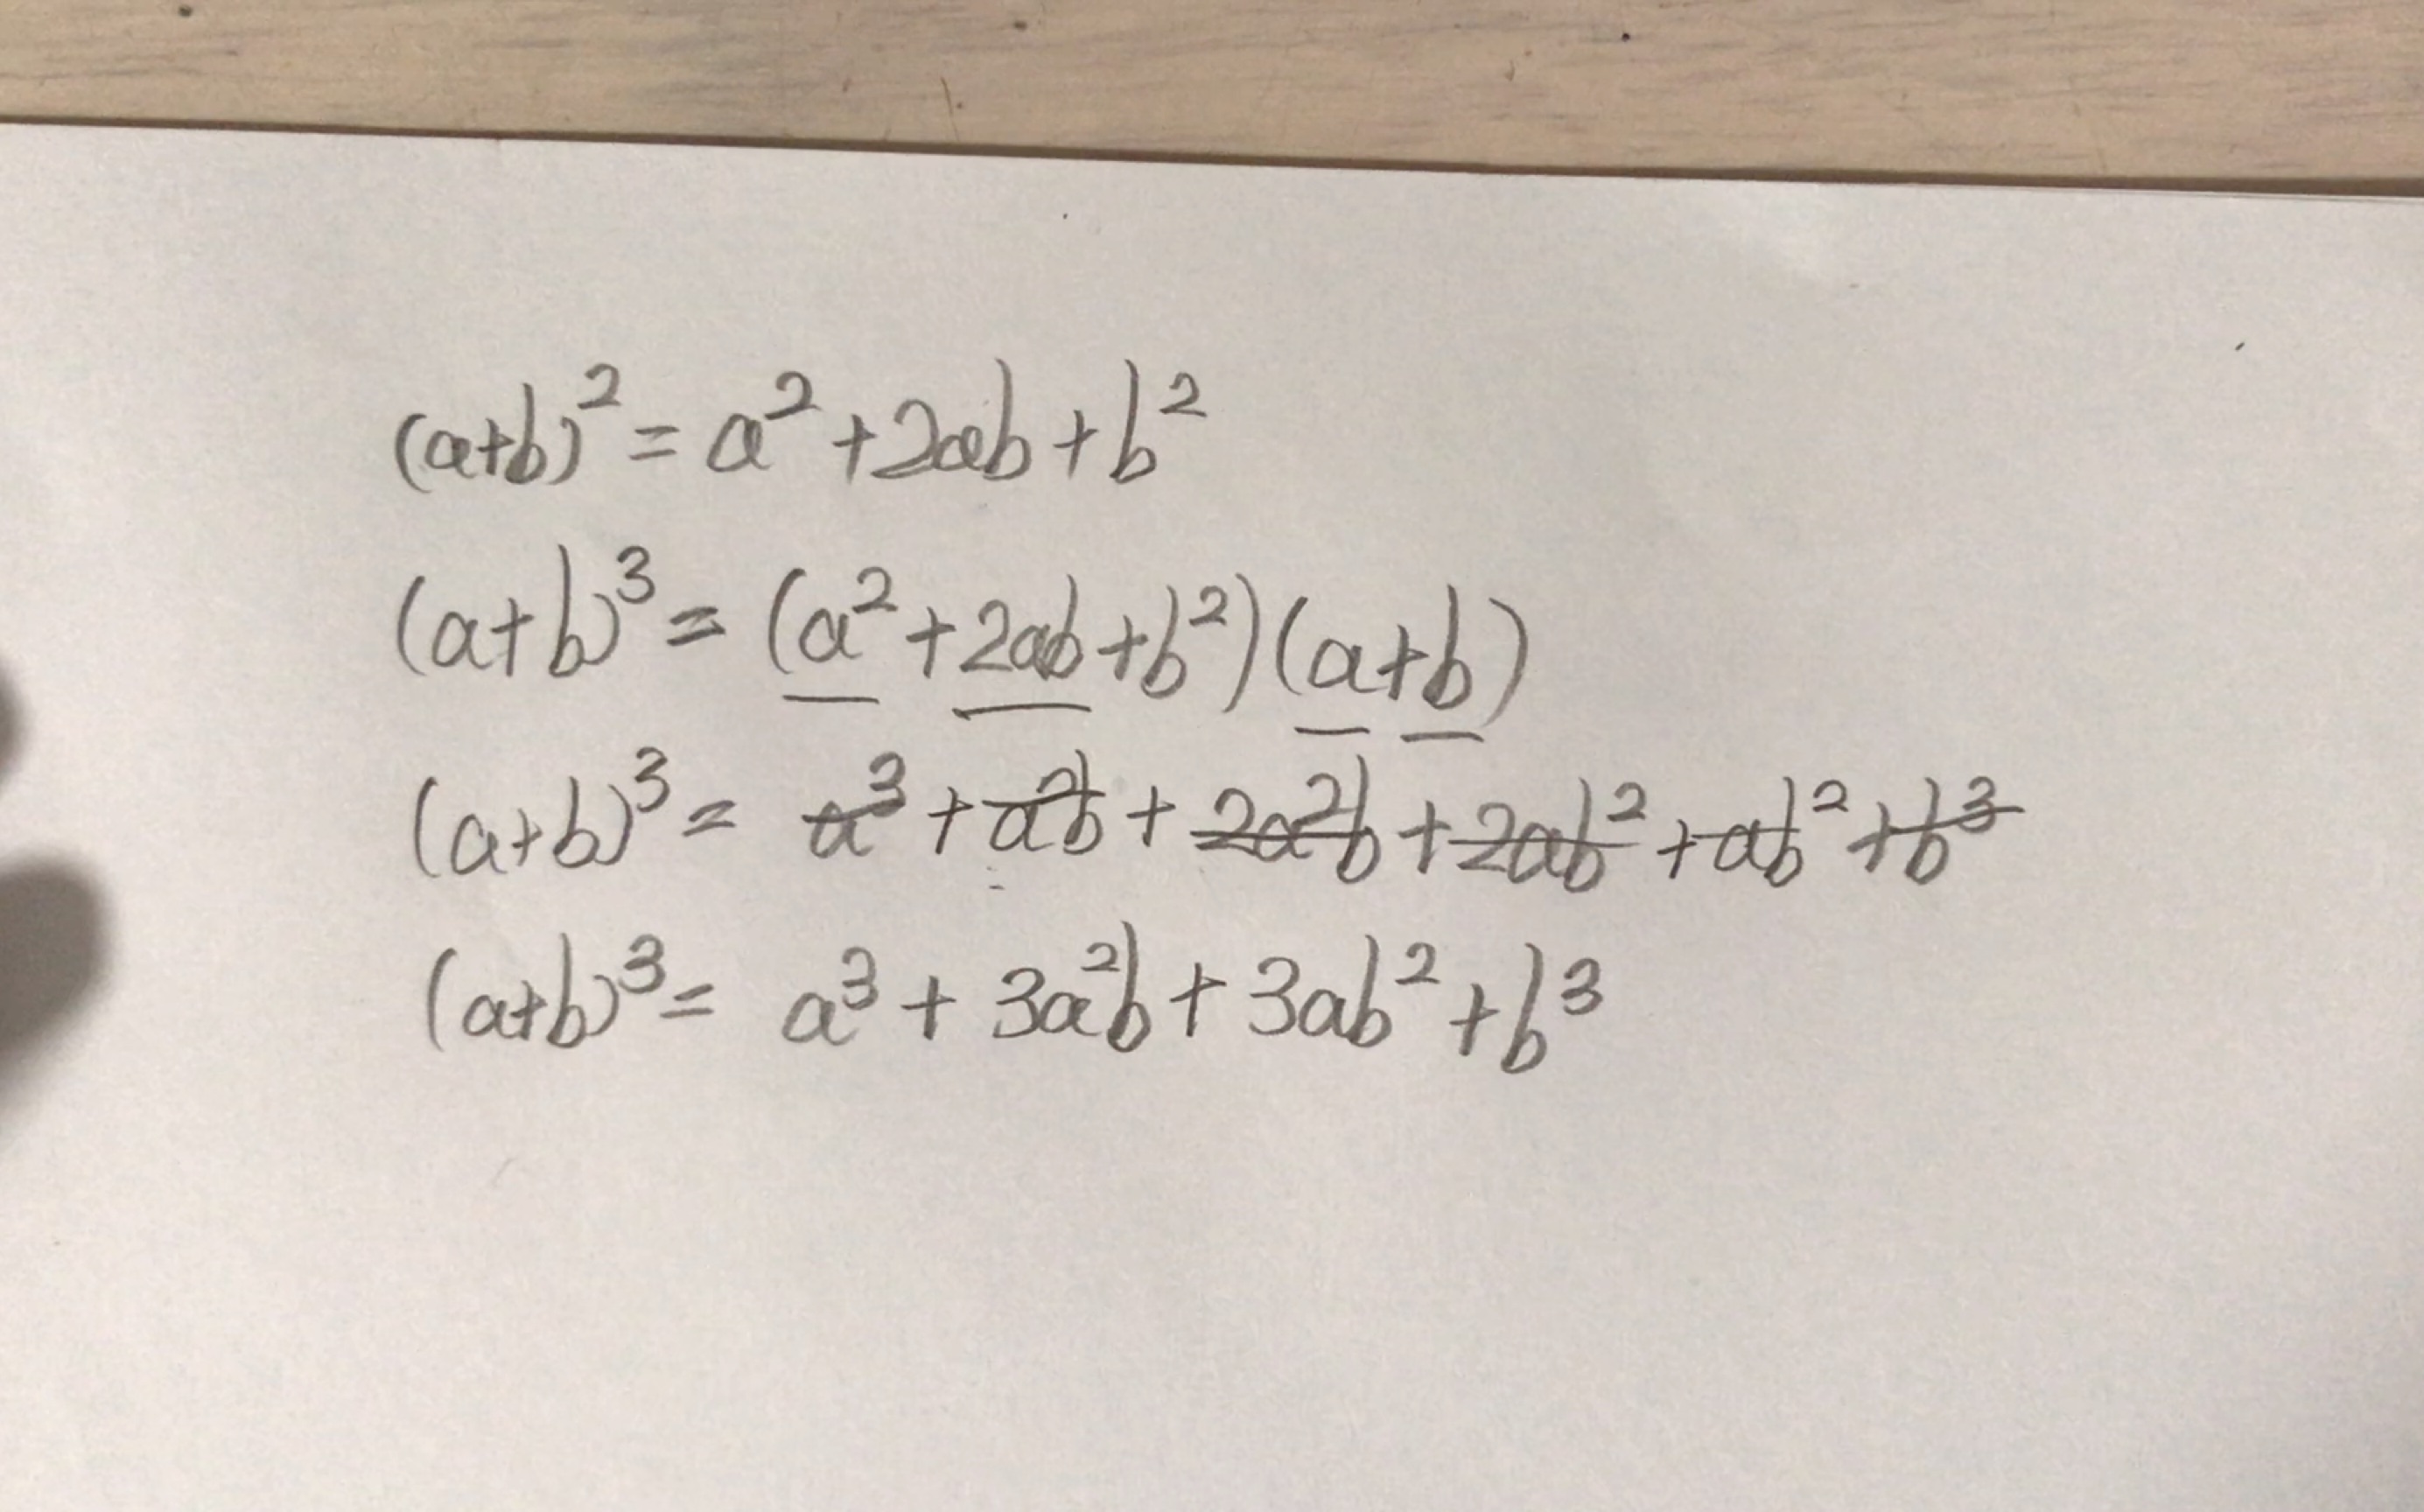 (a+b)² = a² + 2ab + b²
(a+b)³ = (a² + 2ab + b²)(a+b)
(a+b)³ = a³ + a²b + 2a²b + 2ab² + ab² + b³
(a+b)³ = a³ + 3a²b + 3ab² + b³